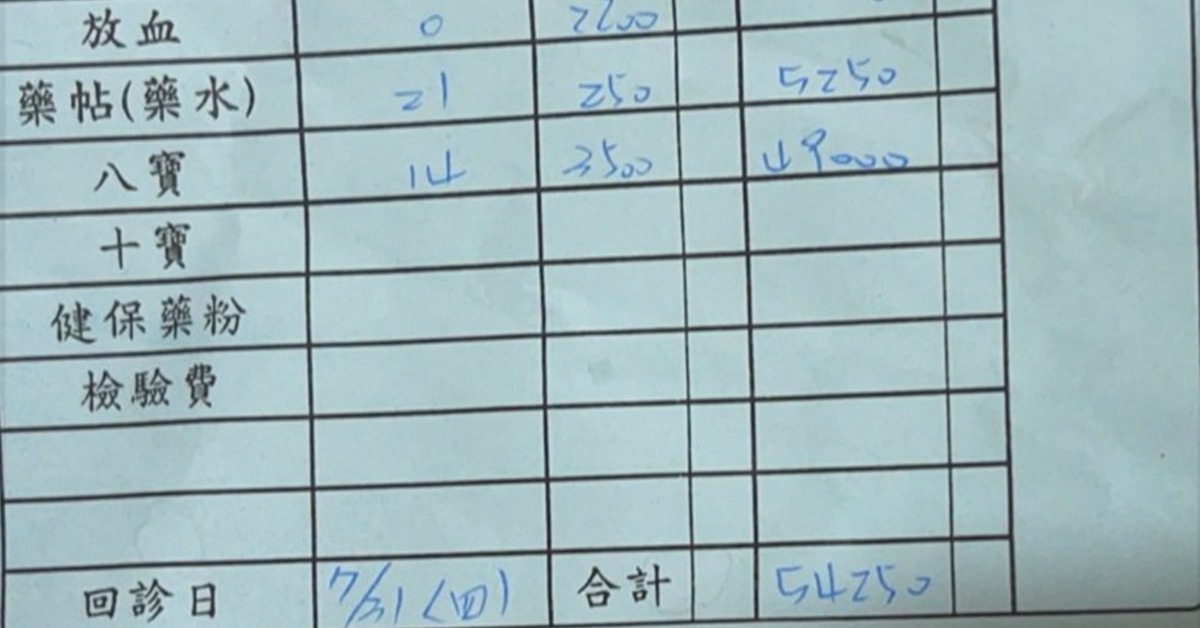 放血 0 2200
藥帖(藥水) 21 250 5250
八寶 14 3500 49000
十寶
健保藥粉
檢驗費
回診日 7/31(四) 合計 54250